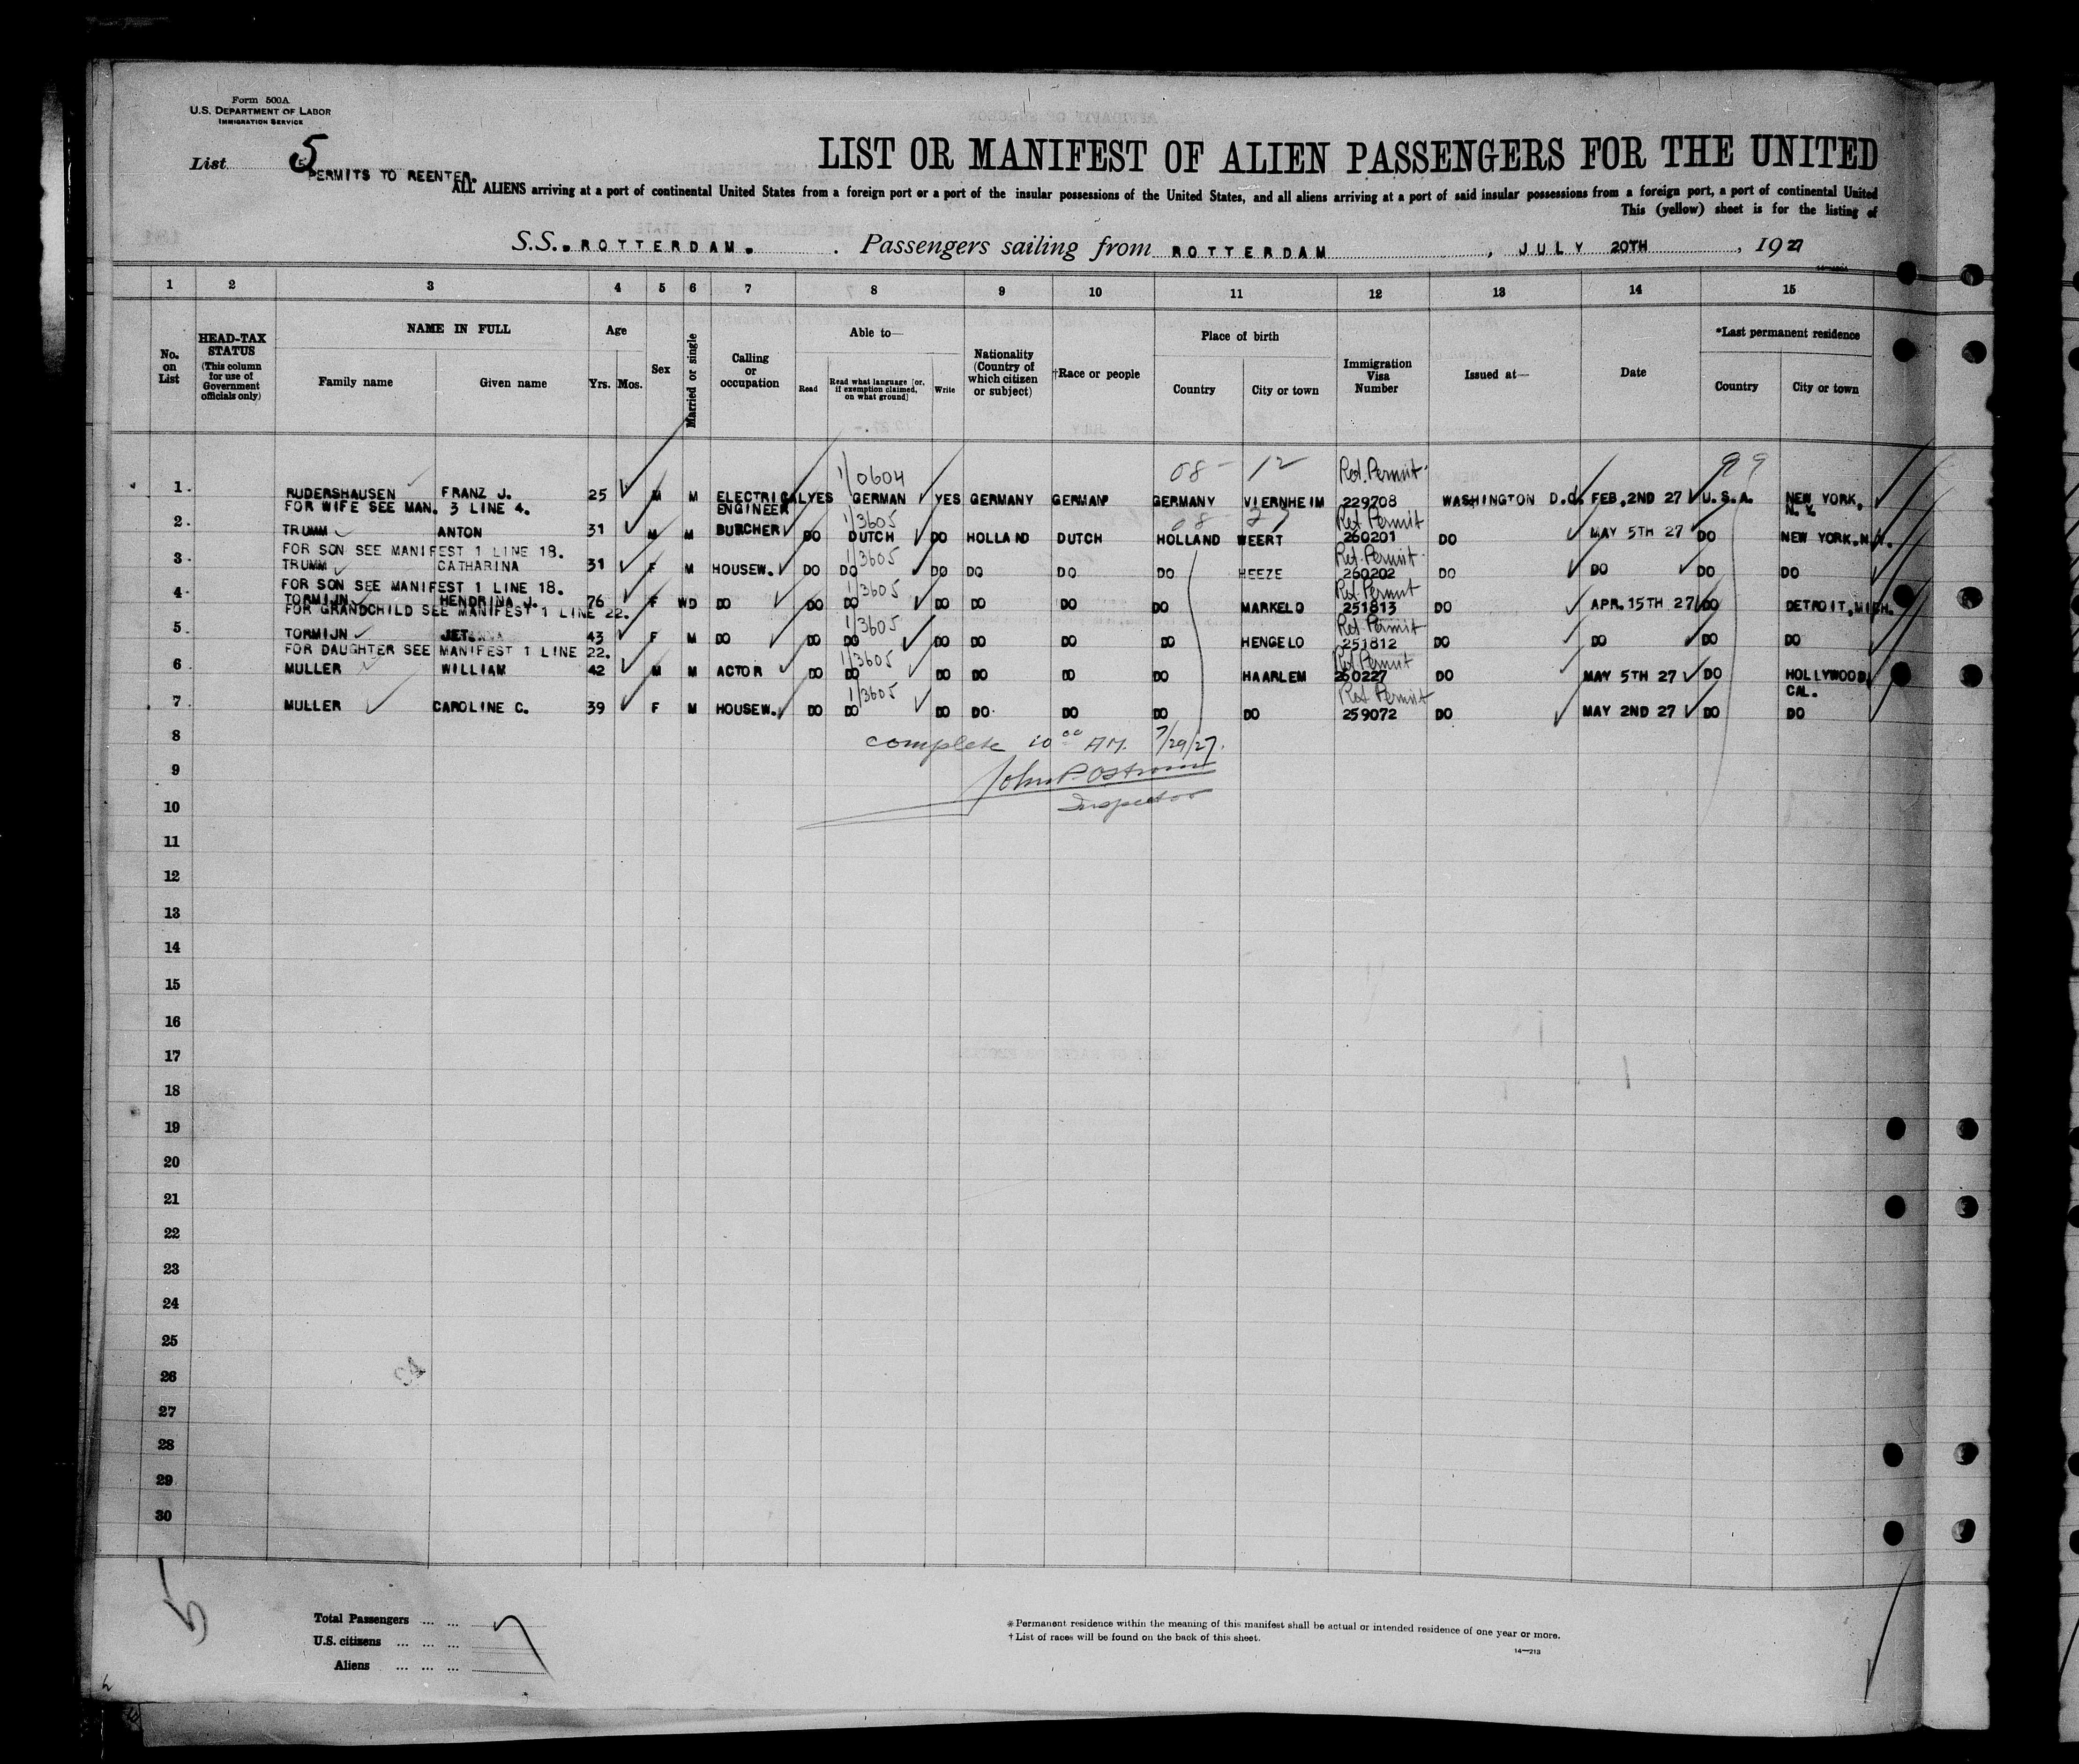 Form 500A
U.S. DEPARTMENT OF LABOR
IMMIGRATION SERVICE
List 5
PERMITS TO REENTER.
LIST OR MANIFEST OF ALIEN PASSENGERS FOR THE UNITED
ALL ALIENS arriving at a port of continental United States from a foreign port or a port of the insular possessions of the United States, and all aliens arriving at a port of said insular possessions from a foreign port, a port of continental United
This (yellow) sheet is for the listing of
S.S. ROTTERDAM. Passengers sailing from ROTTERDAM, JULY 20TH, 1927
1 2 3 4 5 6 7 8 9 10 11 12 13 14 15
No. on List
HEAD-TAX STATUS (This column for use of Government officials only)
NAME IN FULL
Family name Given name
Age
Yrs. Mos.
Sex
Married or single
Calling or occupation
Able to—
Read Read what language [or, if exemption claimed, on what ground] Write
Nationality (Country of which citizen or subject)
†Race or people
Place of birth
Country City or town
Immigration Visa Number
Issued at—
Date
*Last permanent residence
Country City or town
1/0604 08- 12 Ret. Permit 99
1. RUDERSHAUSEN FRANZ J. 25 M M ELECTRICAL ENGINEER YES GERMAN YES GERMANY GERMAN GERMANY VIERNHEIM 229708 WASHINGTON D.C. FEB, 2ND 27 U.S.A. NEW YORK, N.Y.
FOR WIFE SEE MAN. 3 LINE 4.
1/3605 08 27 Ret Permit
2. TRUMM ANTON 31 M M BUTCHER DO DUTCH DO HOLLAND DUTCH HOLLAND WEERT 260201 DO MAY 5TH 27 DO NEW YORK.N.Y.
FOR SON SEE MANIFEST 1 LINE 18.
1/3605 Ret. Permit
3. TRUMM CATHARINA 31 F M HOUSEW. DO DO DO DO DO DO HEEZE 260202 DO DO DO DO
FOR SON SEE MANIFEST 1 LINE 18.
1/3605 Ret Permit
4. TORMIJN HENDRINA J. 76 F WD DO DO DO DO DO DO DO MARKELO 251813 DO APR. 15TH 27 DO DETROIT, MICH.
FOR GRANDCHILD SEE MANIFEST 1 LINE 22.
1/3605 Ret Permit
5. TORMIJN 43 F M DO DO DO DO DO DO DO HENGELO 251812 DO DO DO DO
FOR DAUGHTER SEE MANIFEST 1 LINE 22.
1/3605 Ret Permit
6 MULLER WILLIAM 42 M M ACTOR DO DO DO DO DO DO HAARLEM 260227 DO MAY 5TH 27 DO HOLLYWOOD, CAL.
1/3605 Ret Permit
7. MULLER CAROLINE C. 39 F M HOUSEW. DO DO DO DO DO DO DO 259072 DO MAY 2ND 27 DO DO
8 complete 10 00 AM. 7/29/27.
9 John P. Ostrom
10 Inspector
11
12
13
14
15
16
17
18
19
20
21
22
23
24
25
26
27
28
29
30
5
Total Passengers ... ... 7
U.S. citizens ... ... ...
Aliens ... ... ...
*Permanent residence within the meaning of this manifest shall be actual or intended residence of one year or more.
†List of races will be found on the back of this sheet.
14—213